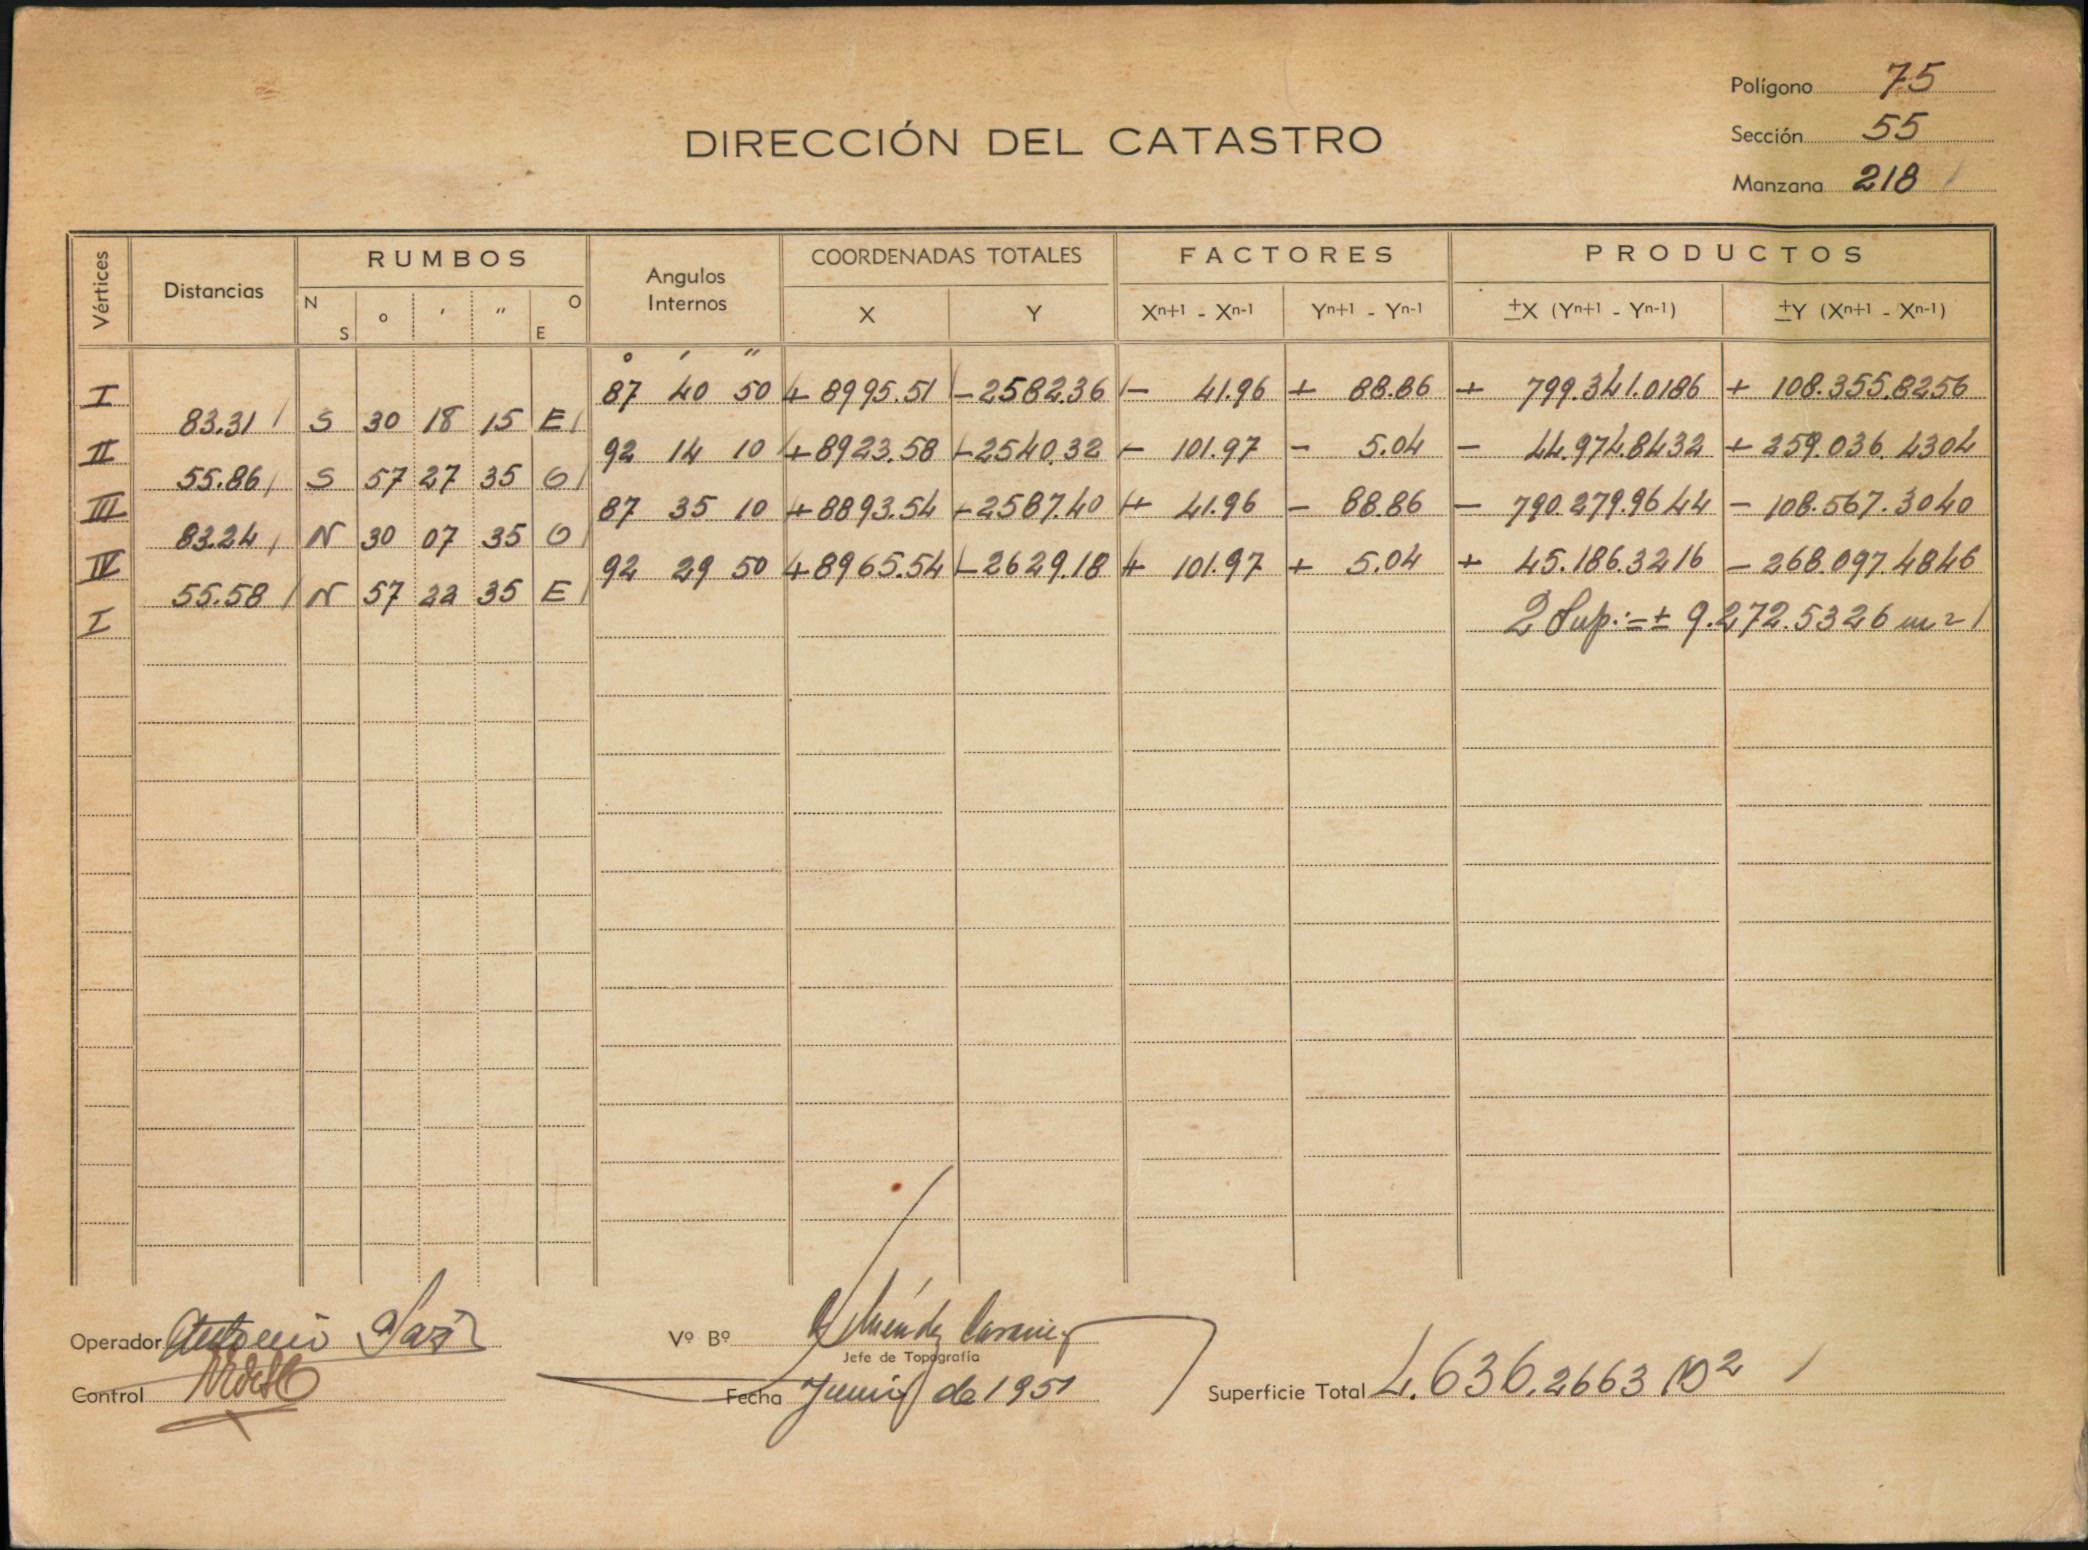 Polígono 75
DIRECCIÓN DEL CATASTRO
Sección 55
Manzana 218
Vértices Distancias RUMBOS Angulos Internos COORDENADAS TOTALES FACTORES PRODUCTOS
N S o ′ ″ O E X Y Xn+1 - Xn-1 Yn+1 - Yn-1 ±X (Yn+1 - Yn-1) ±Y (Xn+1 - Xn-1)
o ′ ″
I 87 40 50 + 8995.51 - 2582.36 - 41.96 + 88.86 + 799.341.0186 + 108.355.8256
83.31 S 30 18 15 E
II 92 14 10 + 8923.58 - 2540.32 - 101.97 - 5.04 - 44.974.8432 + 259.036.4304
55.86 S 57 27 35 O
III 87 35 10 + 8893.54 - 2587.40 + 41.96 - 88.86 - 790.279.9644 - 108.567.3040
83.24 N 30 07 35 O
IV 92 29 50 + 8965.54 - 2629.18 + 101.97 + 5.04 + 45.186.3216 - 268.097.4846
55.58 N 57 22 35 E
I 2 Sup. = ± 9.272.5326 m2
Operador Antonio
Vº Bº Méndez
Jefe de Topografía
Control
Fecha Junio de 1951
Superficie Total 4.636.2663 M2